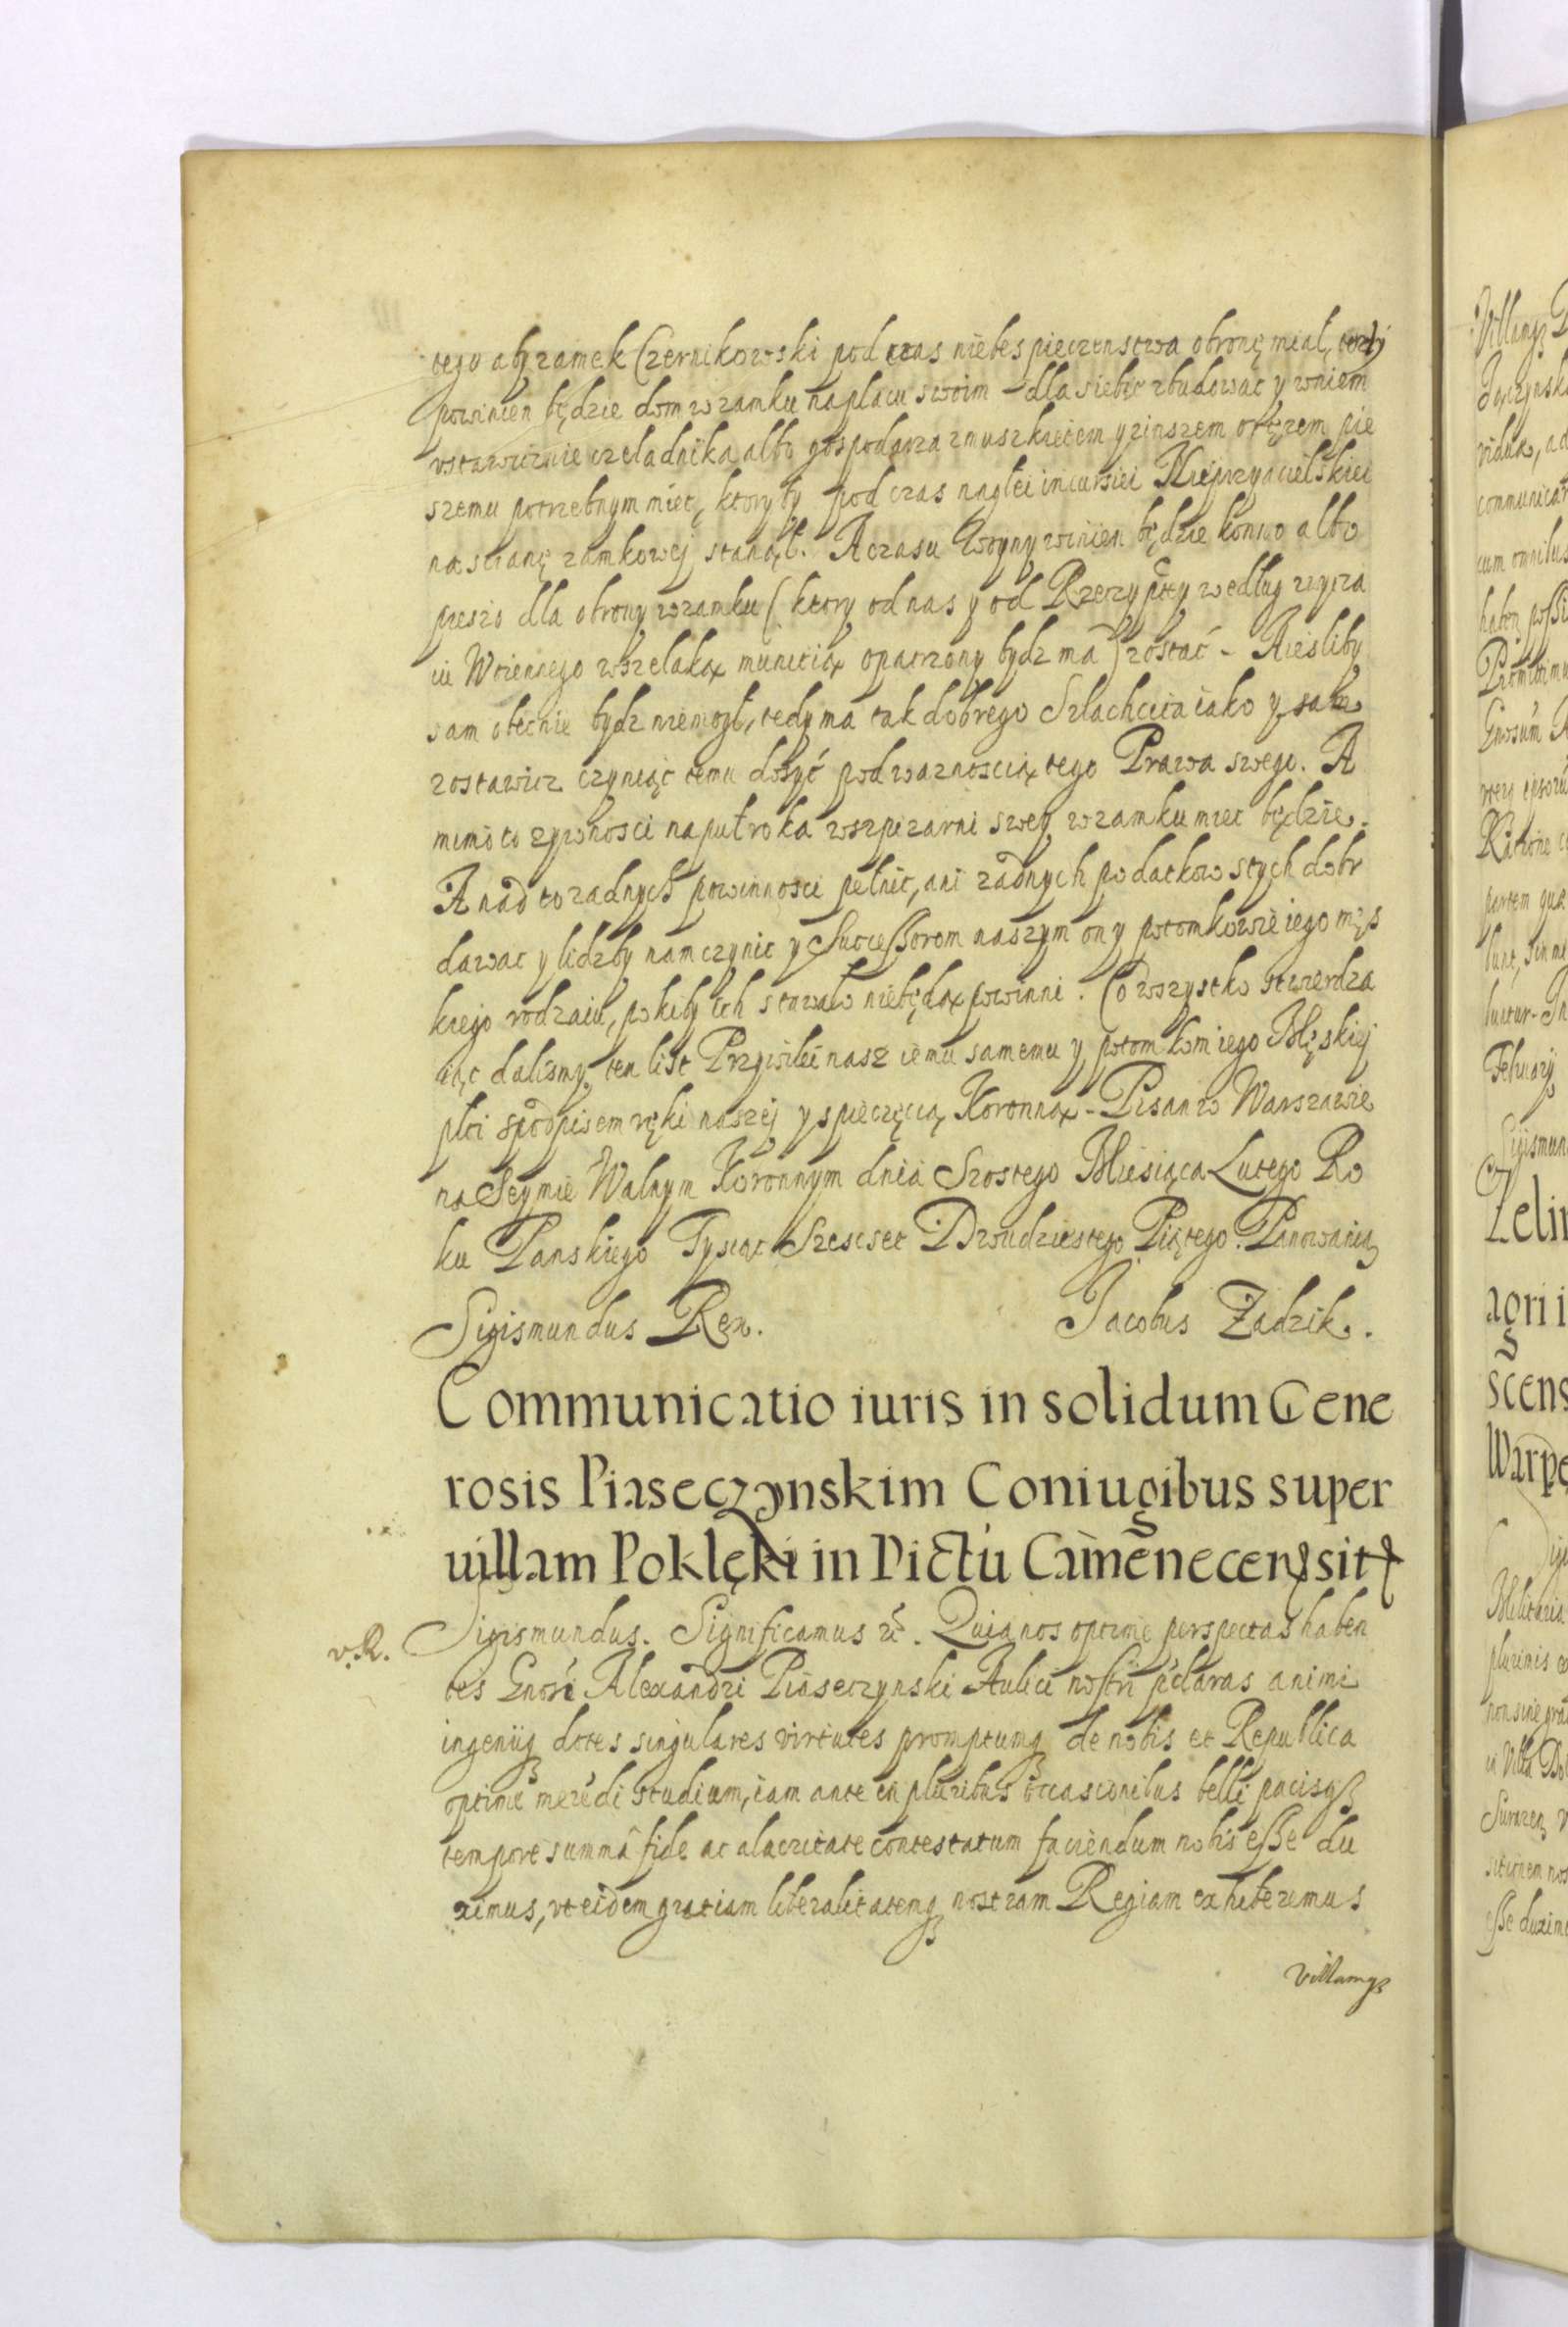 tego aby zamek Czernikowski pod czas niebespieczenstwa obronę miał, tedy
powinien będzie dom w zamku na placu swoim dla siebie zbudowac y w niem
vstawicznie czeladnika albo gospodarza z muszkietem y z inszem oręzem pie
szemu potrzebnym miec, ktoryby pod czas nagłei incursiei Nieprzyacielskiei
na scianę zamkowej stanął. A czasu woyny winien będzie konno albo
pieszo dla obrony w zamku (ktory od nas y od Rzeczyptey według zwycza
iu Wciennego wszelaką municią opatrzony bydz ma) zostać - A iesliby
sam obecnie bydz niemogł, tedy ma tak dobrego Szlachcica iako y sam
zostawicz czyniąc temu dosyć pod waznoscią tego Prawa swego. A
mimo to zywnosci na puł roka w szpizarni swey w zamku miec będzie.
A nad to zadnych powinnosci pełnic, ani zadnych podatkow s tych dobr
dawac y lidzby nam czynic y Successorom naszym on y potomkowie iego męs
kiego rodzaiu, pokiby ich stawało niebędą powinni. Co wszystko stwierdza
iąc dalismy ten list Przywilei nasz iemu samemu y potomkom iego Męskiej
płci s podpisem ręki naszej y s pieczęcią Koronną - Pisan w Warszawie
na Seymie Walnym Koronnym dnia Szostego Miesiąca Lutego Ro
ku Panskiego Tysiąc Szescset Dwudziestego Piątego. Panowania
Sigismundus Rex. Jacobus Zadzik.
Communicatio iuris in solidum Gene
rosis Piaseczynskim Coniugibus super
uillam Poklęki in Dictú Camenecen sit
v. R. Sigismundus. Significamus &c. Quia nos optime perspectas haben
tes Gnosi Alexandri Piaseczynski Aulici nostri pclaras animi
ingeniiq dotes singulares virtutes promptumq de nobis et Republica
optime merēdi studium, iam ante in pluribus occasionibus belli pacisq
tempore summâ fide ac alacritate contestatum faciendum nobis esse du
ximus, vt eidem gratiam liberalitatemq nostram Regiam exhiberemus
villamq